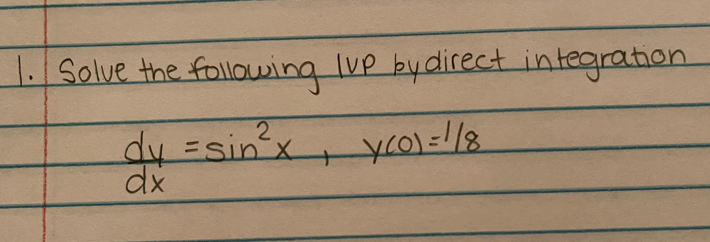 1. Solve the following IVP by direct integration
dy/dx = sin²x , y(0)=1/8